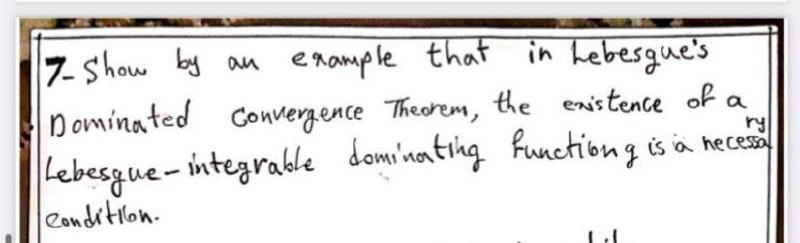 7- Show by an example that in Lebesgue's
Dominated Convergence Theorem, the existence of a
Lebesgue-integrable dominating function g is a necessary
condition.